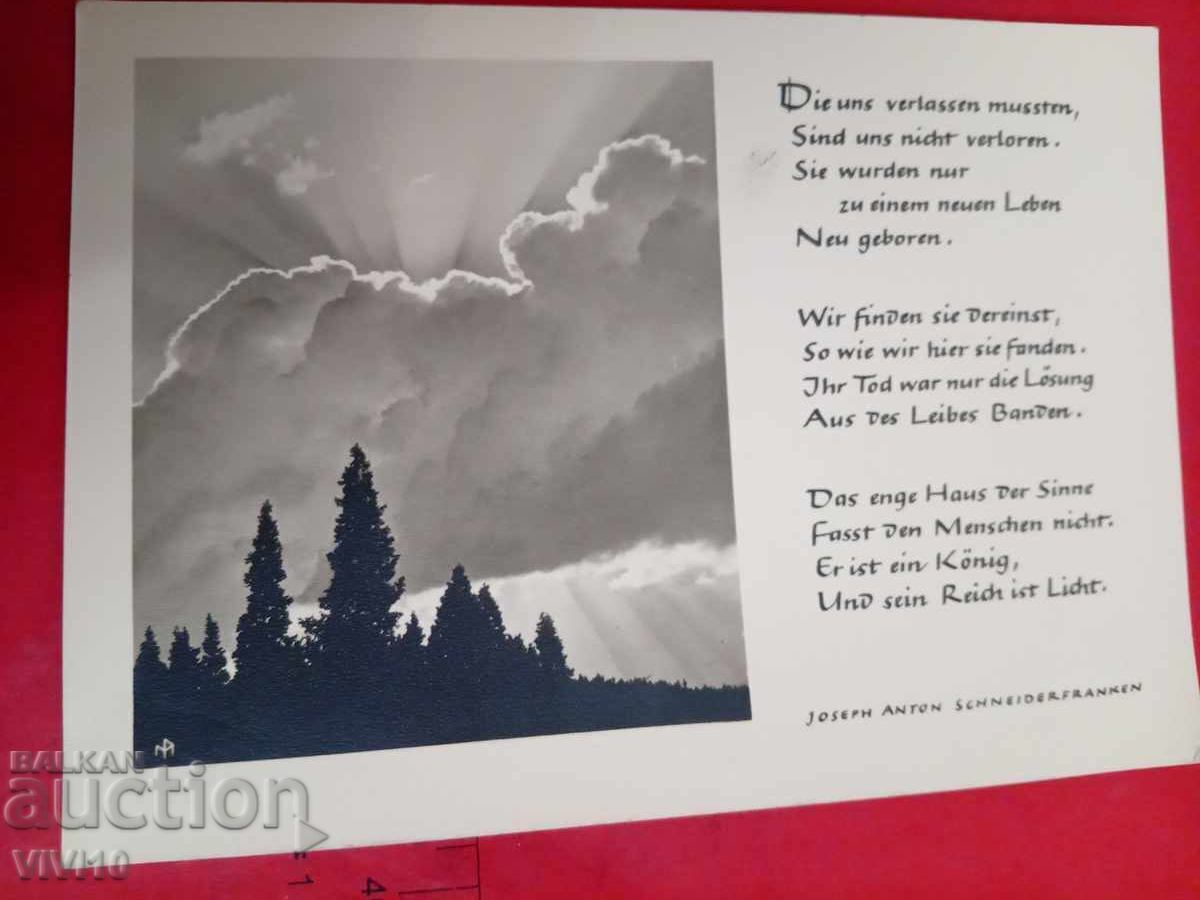 Die uns verlassen mussten,
Sind uns nicht verloren.
Sie wurden nur
zu einem neuen Leben
Neu geboren.
Wir finden sie dereinst,
So wie wir hier sie fanden.
Ihr Tod war nur die Lösung
Aus des Leibes Banden.
Das enge Haus der Sinne
Fasst den Menschen nicht.
Er ist ein König,
Und sein Reich ist Licht.
JOSEPH ANTON SCHNEIDERFRANKEN
BALKAN
auction
VIVI10